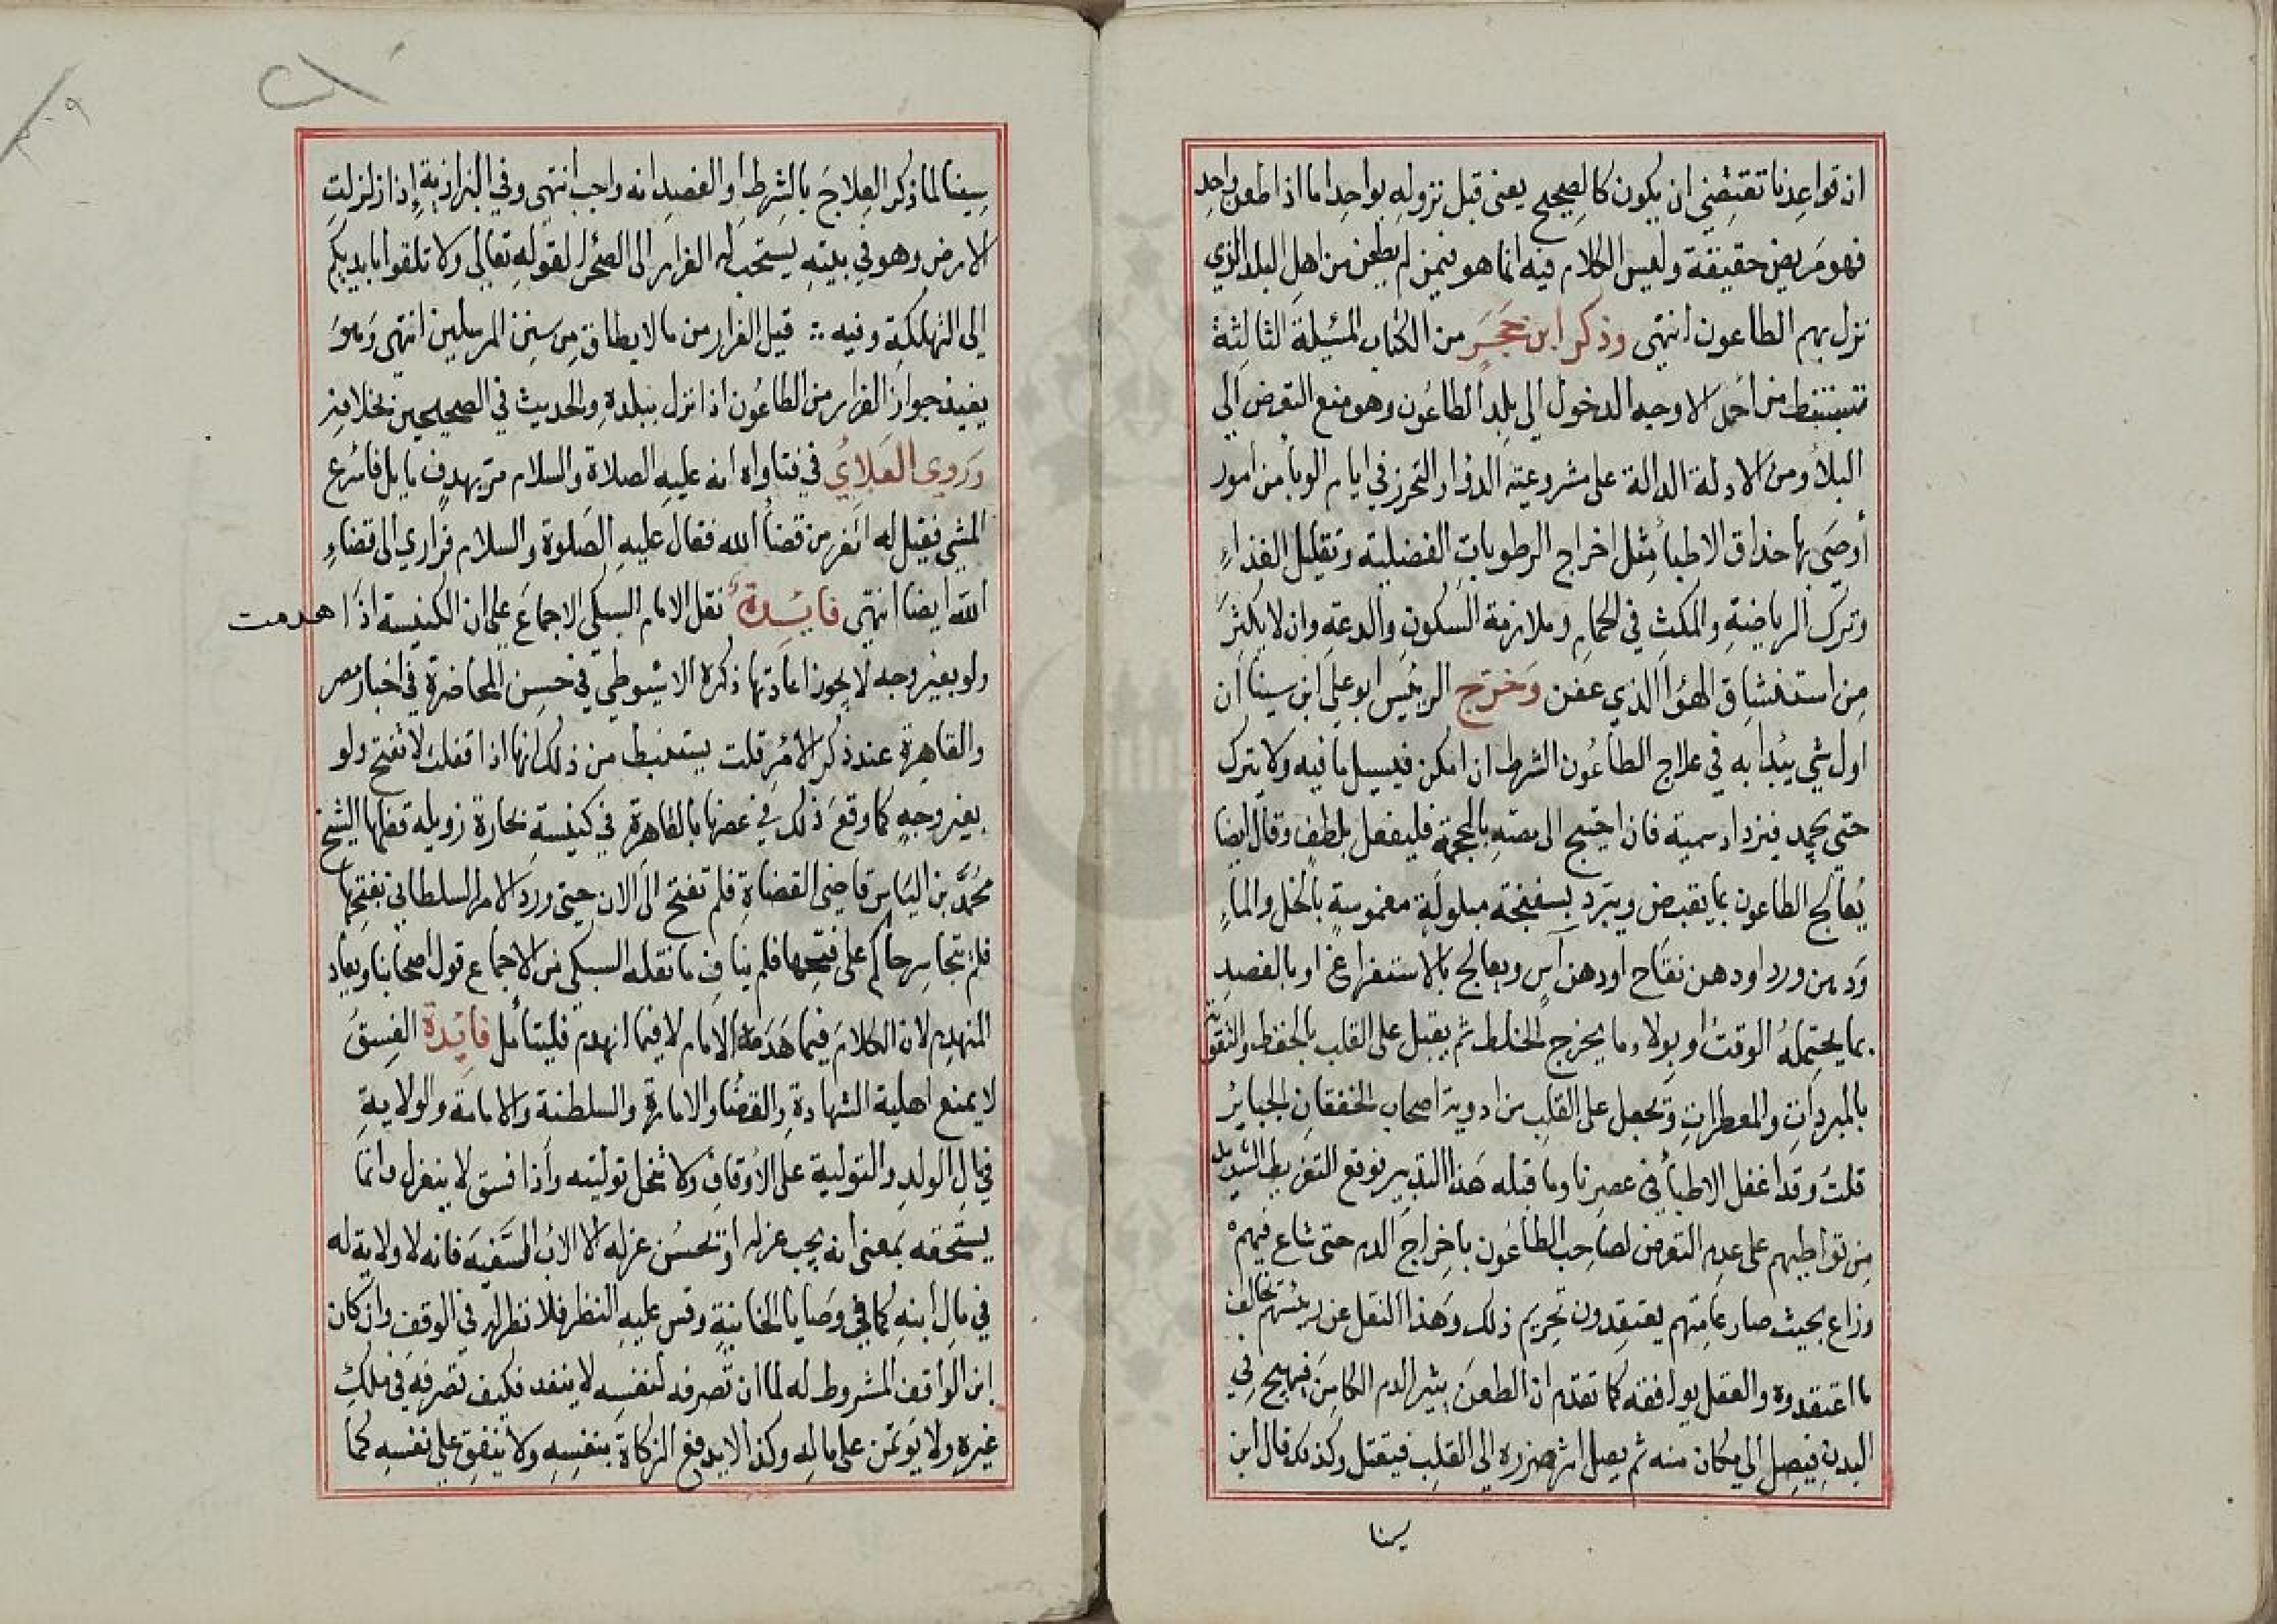 اذ قواعدنا تقتضي ان يكون كالصحيح يعني قبل نزوله بواحد اما اذا طعن واحد
فهو مريض حقيقة وليس الكلام فيه انما هو فيمن لم يطعن من اهل البلد الذي
نزل بهم الطاعون انتهى وذكر ابن حجر من الكتاب المسئلة الثالثة
تستنبط من احد الاوجه الدخول الى بلد الطاعون وهو منع التعرض الى
البلاء ومن الادلة الدالة على مشروعية الدواء والتحرز في ايام الوباء من امور
أوصى بها حذاق الاطباء مثل اخراج الرطوبات الفضلية وتقليل الغذاء
وترك الرياضة والمكث في الحمام وملازمة السكون والدعة وان لا يكثر
من استنشاق الهواء الذي عفن وخرج الرئيس ابو علي ابن سينا ان
اول شي يبدا به في علاج الطاعون الشرط ان امكن فيسيل ما فيه ولا يترك
حتى يجمد فيزداد سميته فان احتيج الى مصه بالمحجمة فليفعل بلطف وقال ايضا
يعالج الطاعون بما يقبض ويبرد بسفنجة مبلولة مغموسة بالخل والماء
ودهن ورد او دهن تفاح او دهن آس ويعالج بالاستفراغ او بالفصد
بما يحتمله الوقت او بولا وما يخرج الخلط ثم يقبل على القلب بالحفظ والتقوية
بالمبردات والمعطرات وتجعل على القلب من ادوية اصحاب الخفقان الجبائر
قلت وقد اغفل الاطباء في عصرنا وما قبله هذا التدبير فوقع التفريط الشديد
من تواطيهم على عدم التعرض لصاحب الطاعون باخراج الدم حتى شاع فيهم
وذاع بحيث صار عامتهم يعتقدون تحريم ذلك وهذا النقل عن رئيسهم يخالف
ما اعتقدوه والعقل يوافقه كما تقدم ان الطعن يثير الدم الكامن فيهيج في
البدن فيصل الى مكان منه ثم يصل اثر ضرره الى القلب فيقتل وكذلك قال ابن
سينا
سينا لما ذكر العلاج بالشرط او الفصد انه واجب انتهى وفي البزازية إذا زلزلت
الارض وهو في بيته يستحب له الفرار الى الصحراء لقوله تعالى ولا تلقوا بايديكم
إلى التهلكة وفيه ∴ قيل الفرار من ما لا يطاق من سنن المرسلين انتهى وهو
يفيد جواز الفرار من الطاعون اذا نزل ببلدة والحديث في الصحيحين بخلافه
وروى العلائي في فتاواه انه عليه الصلاة والسلام مر بهدف مايل فاسرع
المشي فقيل له اتفر من قضاء الله فقال عليه الصلوة والسلام فراري الى قضاء
الله ايضا انتهى فايدة نقل الامام السبكي الاجماع على ان الكنيسة اذا هدمت
ولو بغير وجه لا يجوز اعادتها ذكره الاسيوطي في حسن المحاضرة في اخبار مصر
والقاهرة عند ذكر الامر قلت يستنبط من ذلك انها اذا قفلت لا تفتح ولو
بغير وجه كما وقع ذلك في عصرنا بالقاهرة في كنيسة بحارة زويله قفلها الشيخ
محمد بن الياس قاضي القضاة فلم تفتح الى الان حتى ورد الامر السلطاني بفتحها
فلم يتجاسر حاكم على فتحها فلم يناف ما نقله السبكي من الاجماع قول اصحابنا ويعاد
المنهدم لان الكلام فيما هدمه الامام لا فيما انهدم فليتأمل فايدة الفسق
لا يمنع اهلية الشهادة والقضاء والامارة والسلطنة والامامة والولاية
في مال الولد والتولية على الاوقاف ولا تحل توليته واذا فسق لا ينعزل وانما
يستحقه بمعنى انه يجب عزله او تحسن عزله الا الاب السفيه فانه لا ولاية له
في مال ابنه كما في وصايا الخانية وقس عليه النظر فلا نظر له في الوقف وان كان
ابن الواقف المشروط له لما ان تصرفه لنفسه لا ينفد فكيف تصرفه في ملك
غيره ولا يؤتمن على ماله وكذا لا يدفع الزكاة بنفسه ولا ينفق على نفسه كما